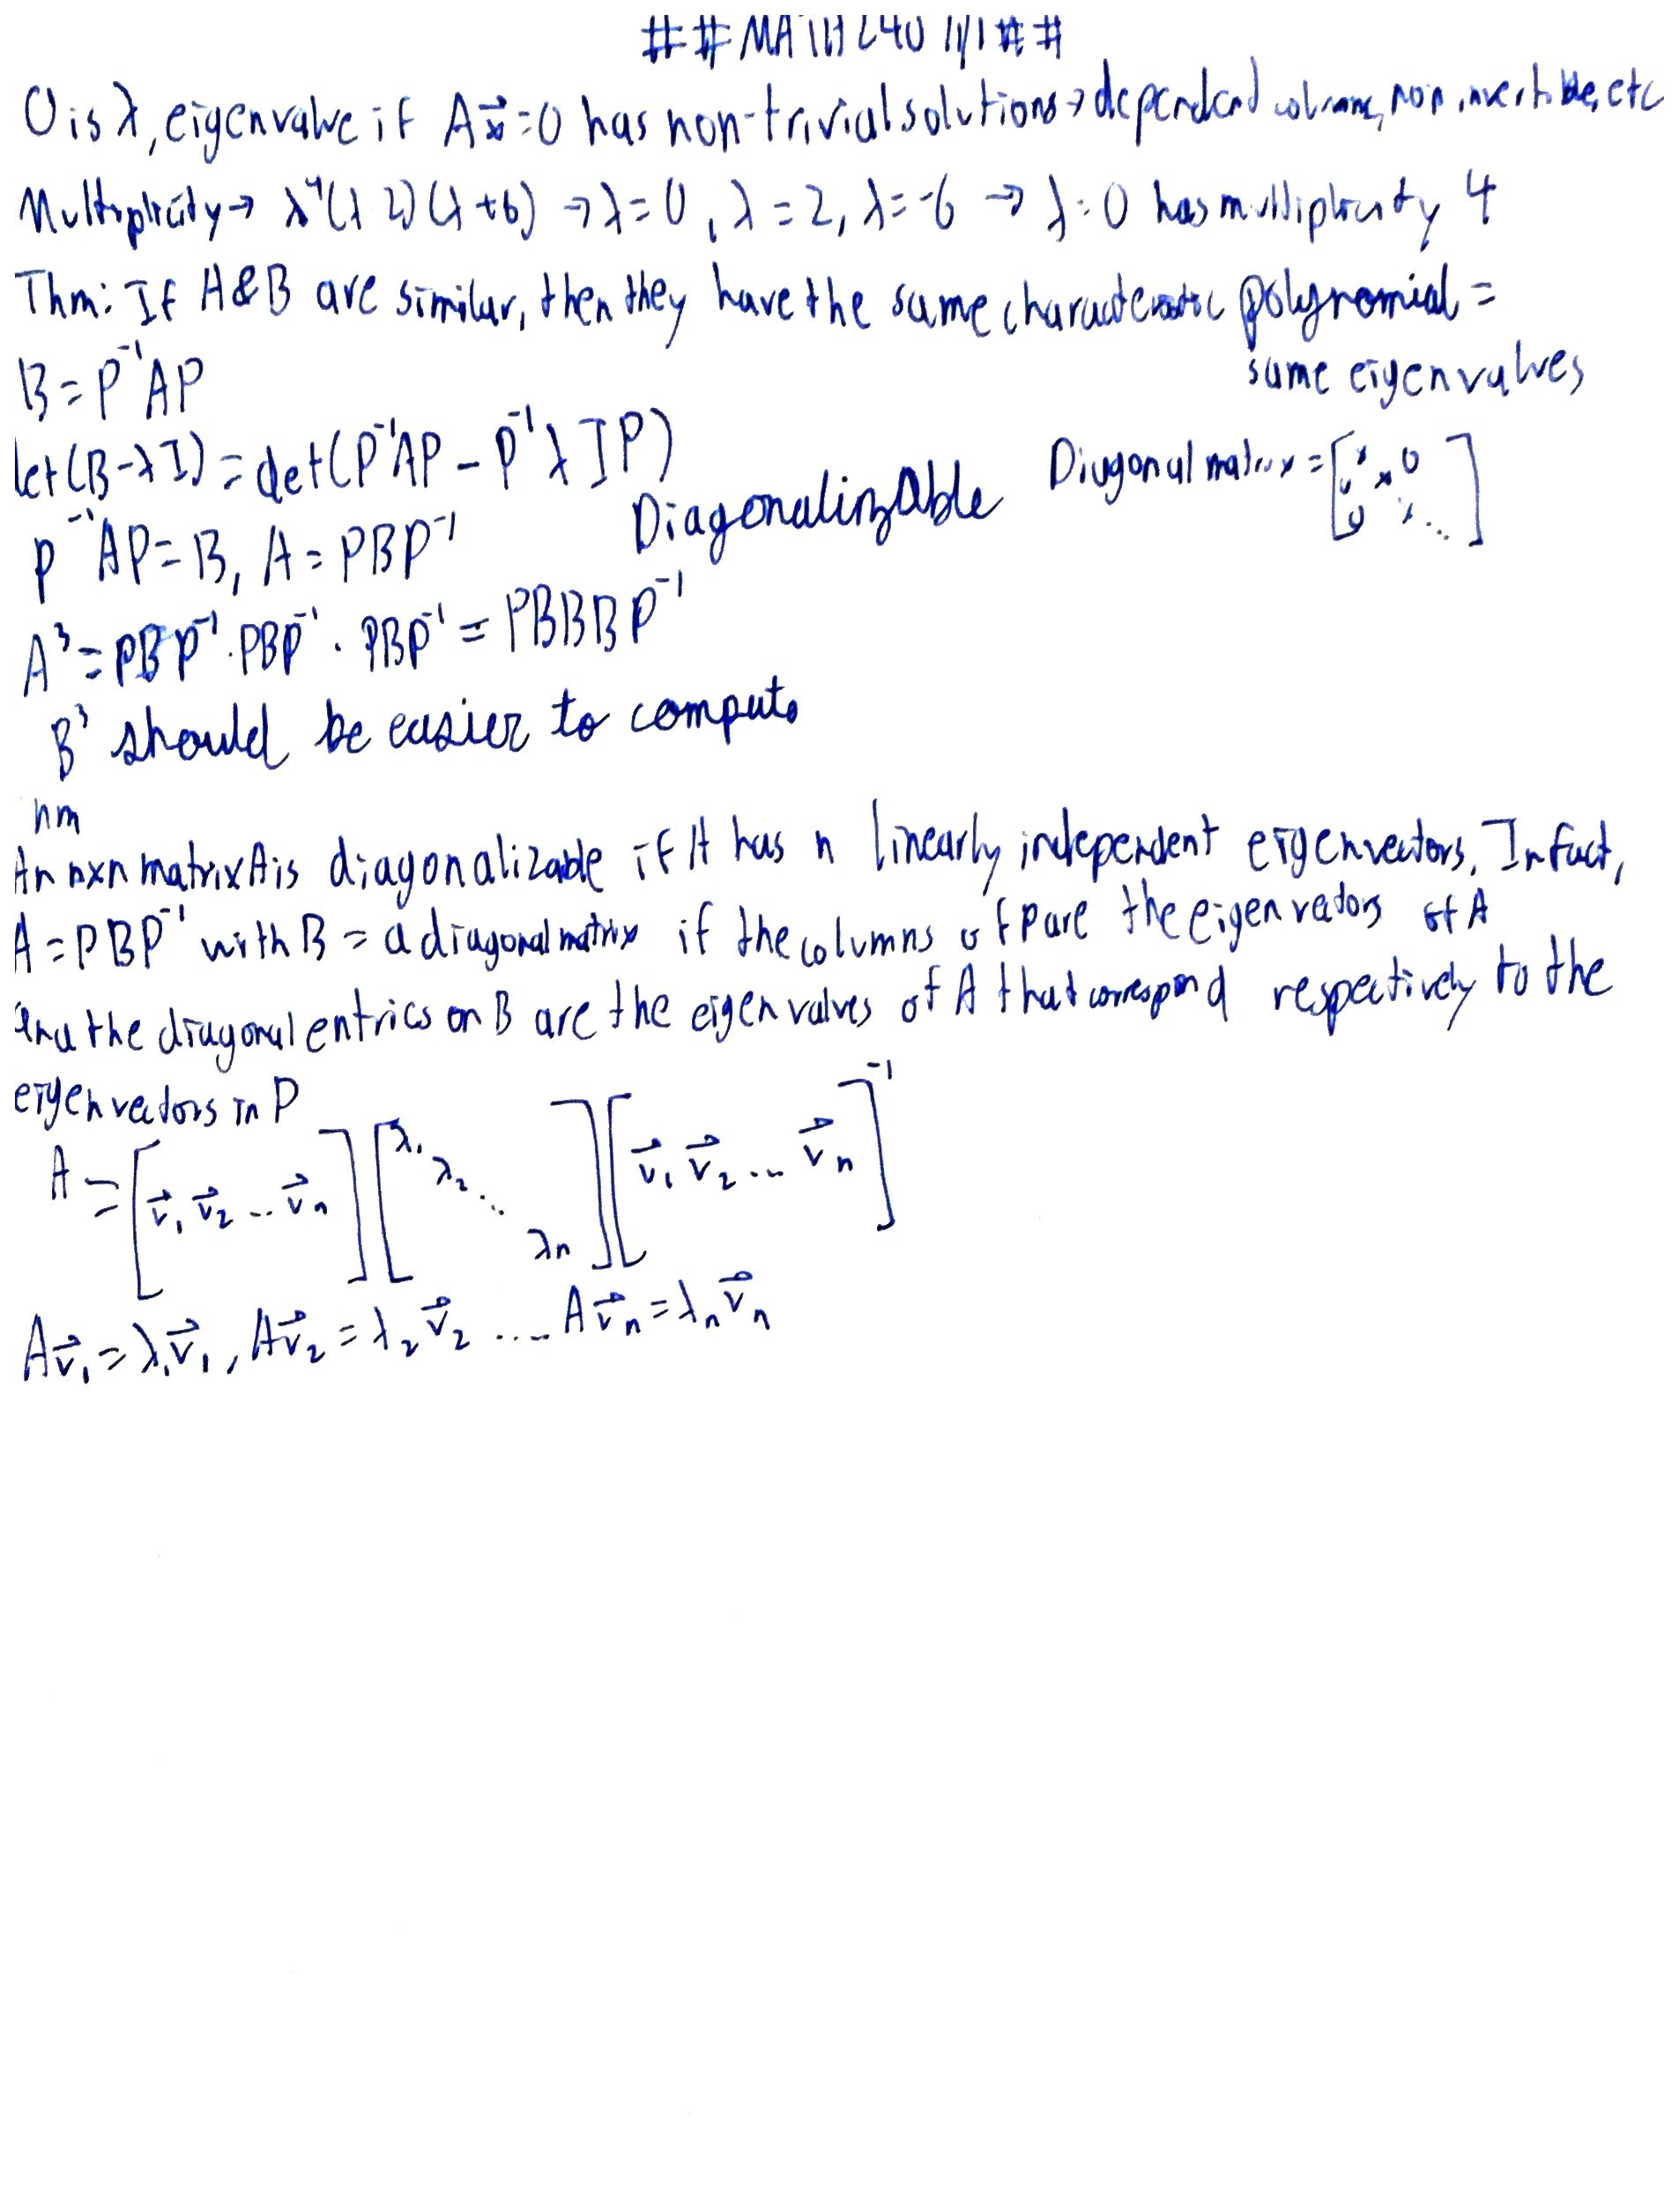 ##MATH240 ##
0 is λ, eigenvalue if Ax⃗=0 has non-trivial solutions→dependend columns, non invertible, etc
Multiplicity→ λ⁴(λ 2)(λ+6) →λ=0, λ=2, λ=-6 → λ=0 has multiplicity 4
Thm: If A&B are similar, then they have the same characteristic polynomial =
same eigenvalues
B=P⁻¹AP
det(B-λI)=det(P⁻¹AP-P⁻¹λIP)
Diagonalizable Diagonal matrix=[ 0 ⋱ ]
P⁻¹AP=B, A=PBP⁻¹
A³=PBP⁻¹·PBP⁻¹·PBP⁻¹=PBBBP⁻¹
B³ should be easier to compute
hm
An nxn matrix A is diagonalizable if A has n linearly independent eigenvectors. In fact,
A=PBP⁻¹ with B=a diagonal matrix if the columns of P are the eigenvectors of A
and the diagonal entries on B are the eigenvalves of A that correspond respectively to the
eigenvectors in P
A=[v⃗₁ v⃗₂ ... v⃗ₙ][λ₁ λ₂ ⋱ λn][v⃗₁ v⃗₂ ... v⃗ₙ]⁻¹
Av⃗₁=λ₁v⃗₁, Av⃗₂=λ₂v⃗₂ .... Av⃗ₙ=λₙv⃗ₙ